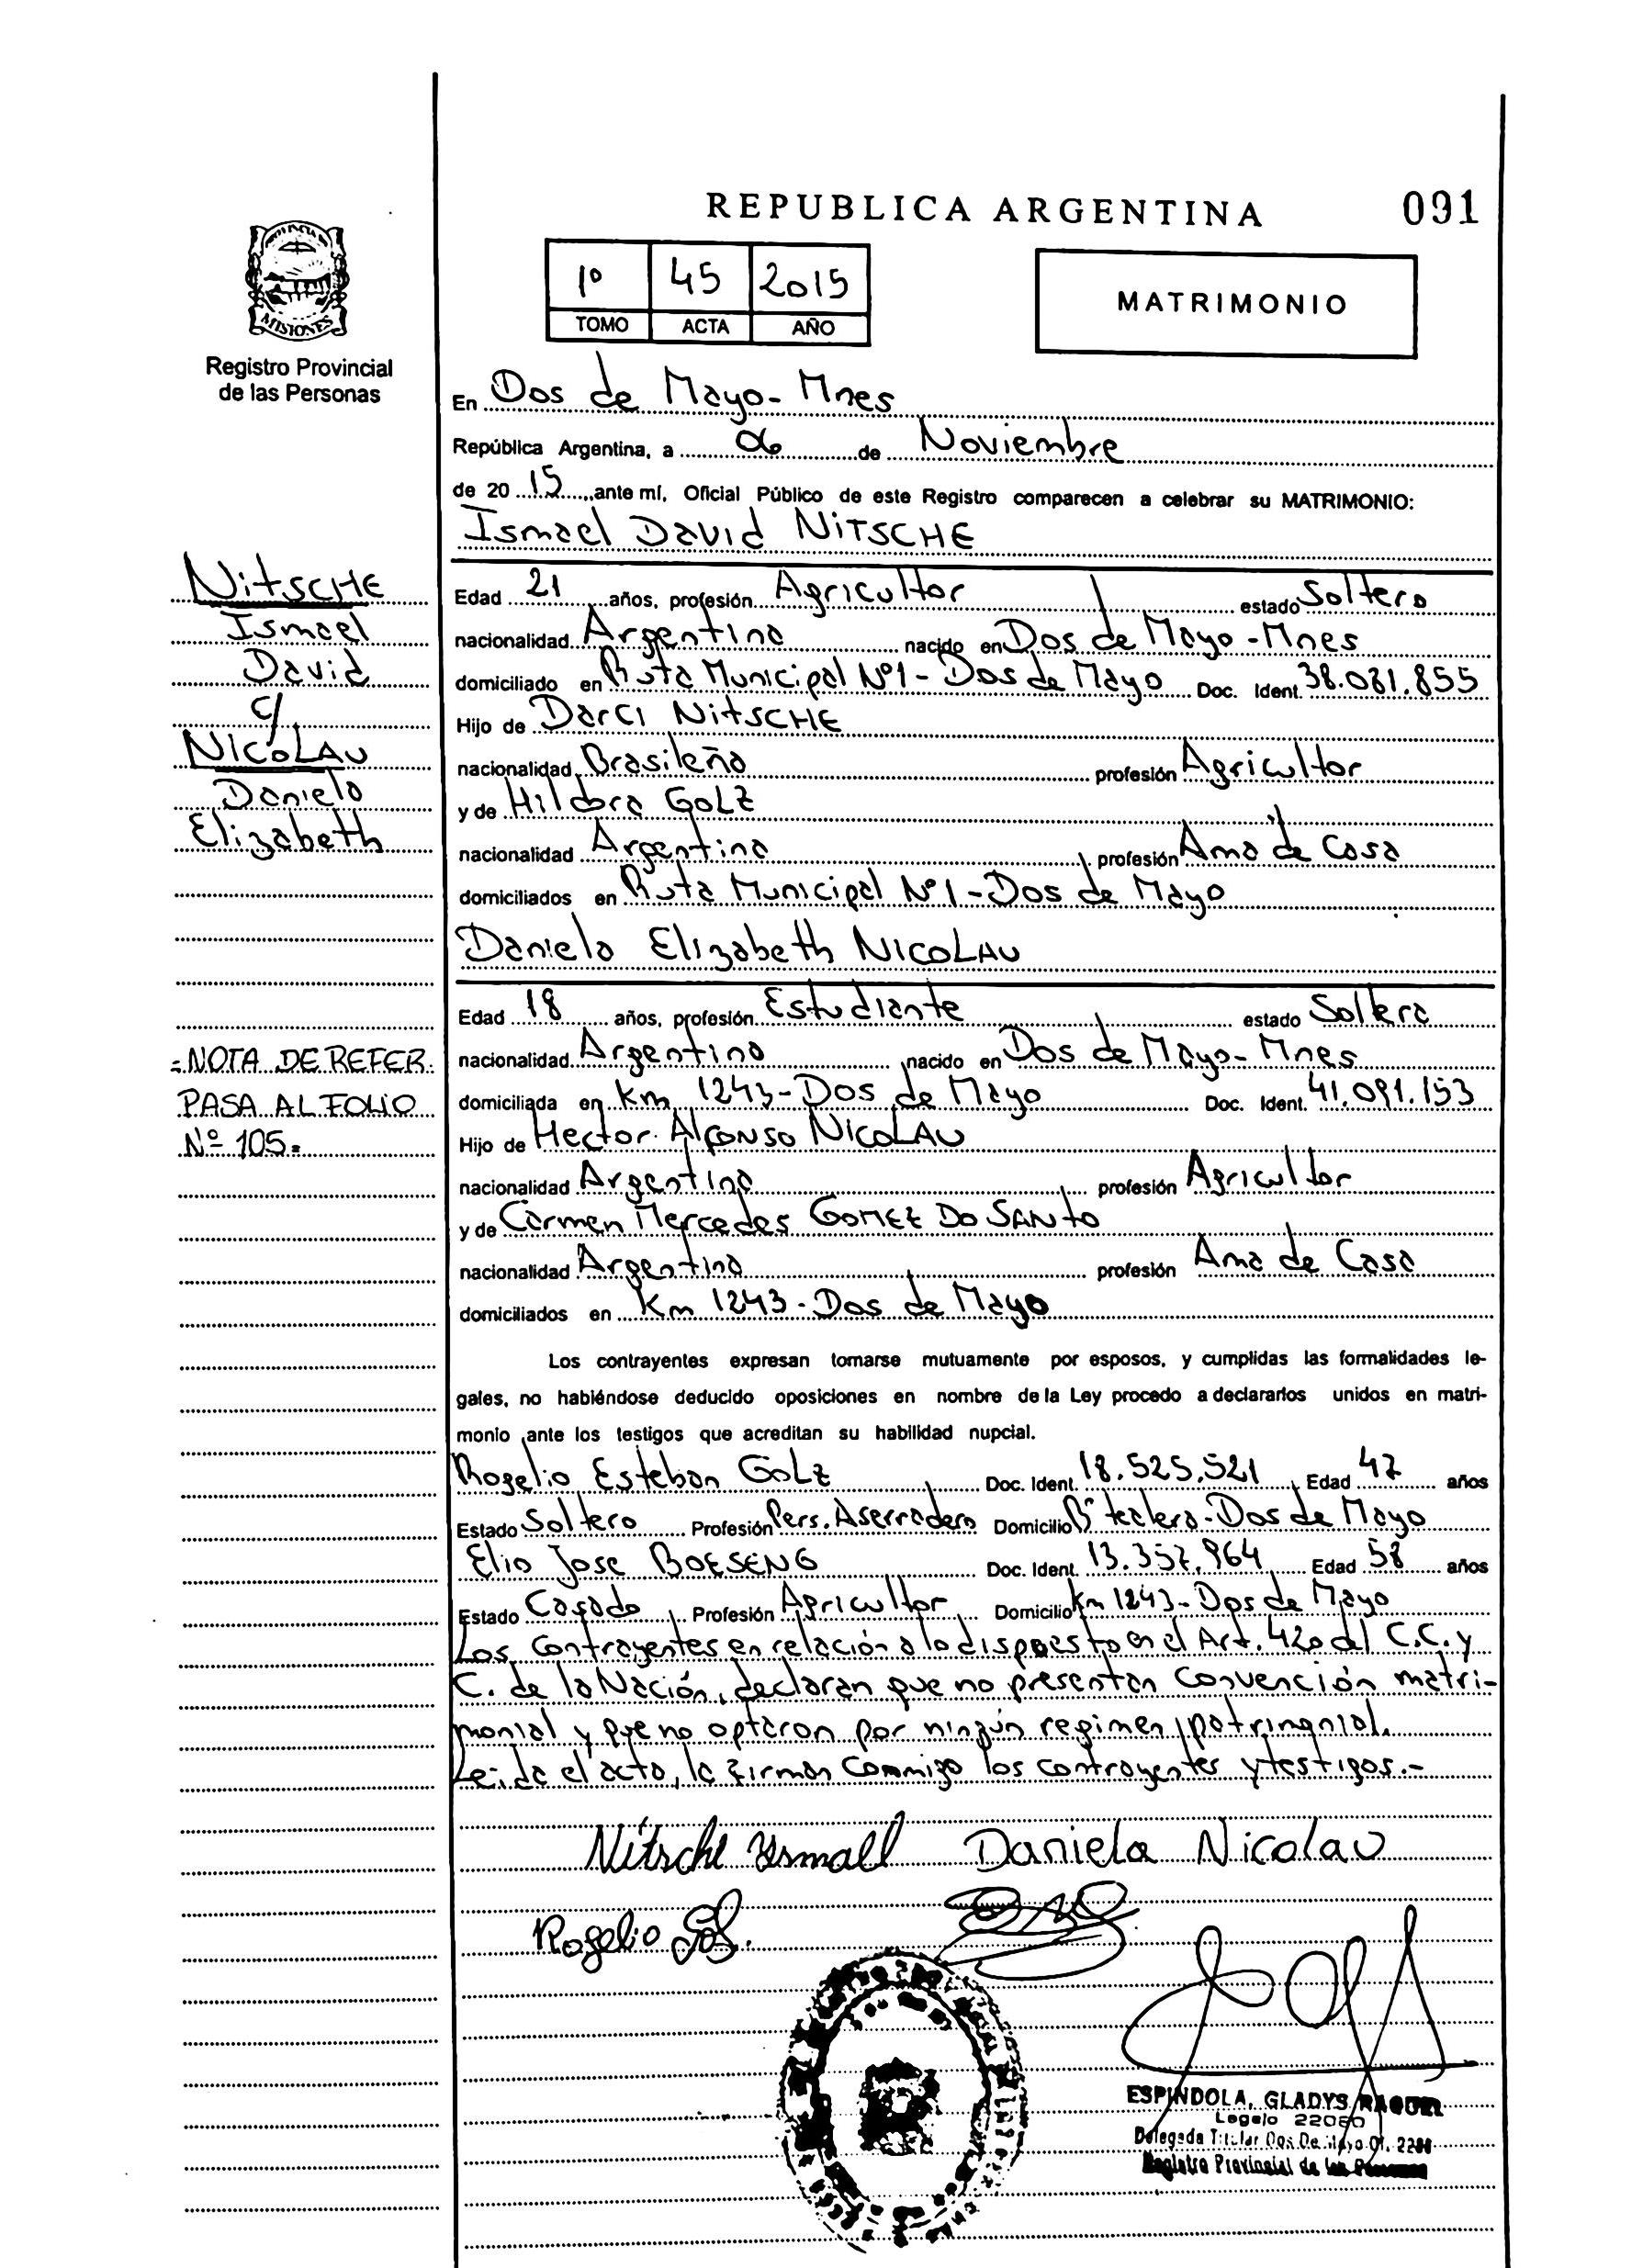 REPUBLICA ARGENTINA
091
MISIONES
Registro Provincial
de las Personas
1º 45 2015
TOMO ACTA AÑO
MATRIMONIO
En Dos de Mayo- Mnes
República Argentina, a 06 de Noviembre
de 20 15 ante mí, Oficial Público de este Registro comparecen a celebrar su MATRIMONIO:
Ismael David NITSCHE
Nitsche
Ismael
David
c/
NICOLAU
Daniela
Elizabeth
Edad 21 años, profesión Agricultor estado Soltero
nacionalidad Argentina nacido en Dos de Mayo - Mnes
domiciliado en Ruta Municipal Nº1 - Dos de Mayo Doc. Ident. 38.081.855
Hijo de Darci NitSCHE
nacionalidad Brasileña profesión Agricultor
y de Hildora GOLZ
nacionalidad Argentina profesión Ama de Casa
domiciliados en Ruta Municipal Nº1 - Dos de Mayo
Daniela Elizabeth NICOLAU
Edad 18 años, profesión Estudiante estado Soltera
nacionalidad Argentina nacido en Dos de Mayo- Mnes
domiciliada en Km 1243- Dos de Mayo Doc. Ident. 41.091.153
Hijo de Hector Alfonso NICOLAU
nacionalidad Argentina profesión Agricultor
y de Carmen Mercedes GOMEZ DO SANTO
nacionalidad Argentina profesión Ama de Casa
domiciliados en Km 1243 - Dos de Mayo
=NOTA DE REFER.
PASA AL FOLIO
Nº 105=
Los contrayentes expresan tomarse mutuamente por esposos, y cumplidas las formalidades le-
gales, no habiéndose deducido oposiciones en nombre de la Ley procedo a declararlos unidos en matri-
monio ante los testigos que acreditan su habilidad nupcial.
Rogelio Esteban GOLZ Doc. Ident. 18.525.521 Edad 47 años
Estado Soltero Profesión Pers. Aserradero Domicilio Bº tealera - Dos de Mayo
Elio Jose BOESENG Doc. Ident. 13.357.964 Edad 58 años
Estado Casado Profesión Agricultor Domicilio Km 1243 - Dos de Mayo
Los Contrayentes en relación a lo dispuesto en el Art. 420 del C.C. y
C. de la Nación, declaran que no presentan Convención matri-
monial y que no optaron por ningún regimen patrimonial.
Leída el acta, la firman conmigo los contrayentes y testigos.-
Nitsche Ismael Daniela Nicolau
Rogelio Golz.
ESPINDOLA, GLADYS RAQUEL
Legajo 22080
Delegada Titular Dos De Mayo Of. 2288
Registro Provincial de las Personas